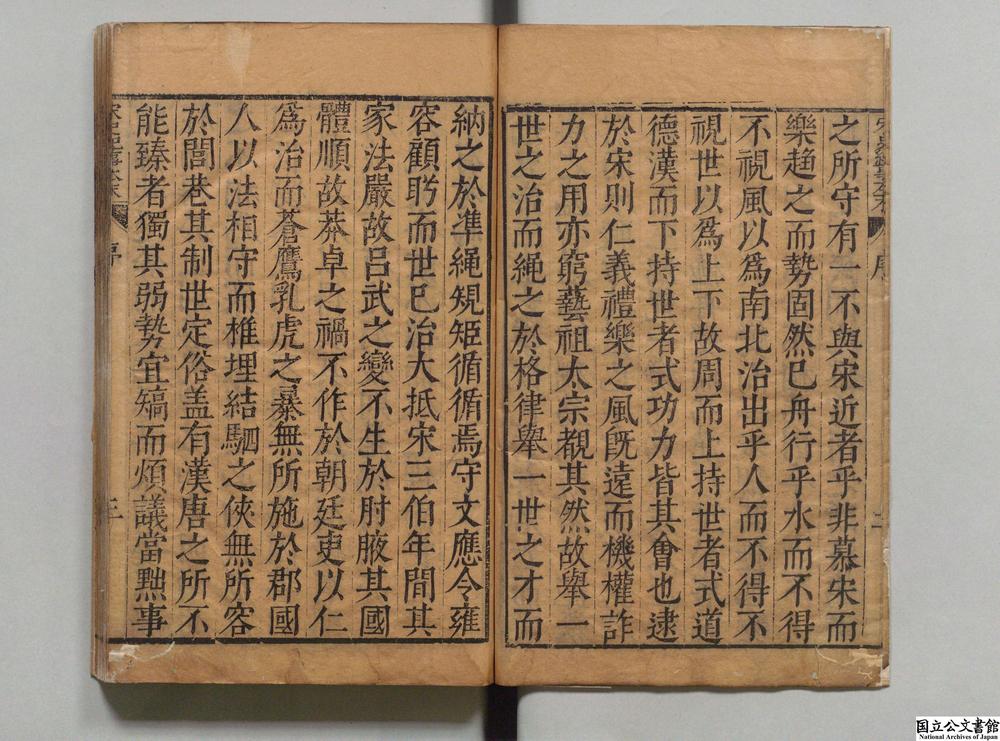 之所守有一不與宋近者乎非慕宋而
樂趨之而勢固然已舟行乎水而不得
不視風以爲南北治出乎人而不得不
視世以爲上下故周而上持世者式道
德漢而下持世者式功力皆其會也逮
於宋則仁義禮樂之風既遠而機權詐
力之用亦窮藝祖太宗覩其然故舉一
世之治而繩之於格律舉一世之才而
納之於準繩規矩循循焉守文應令雍
容顧盻而世已治大抵宋三伯年間其
家法嚴故呂武之變不生於肘腋其國
體順故莽卓之禍不作於朝廷吏以仁
爲治而蒼鷹乳虎之暴無所施於郡國
人以法相守而椎埋結駟之俠無所容
於閭巷其制世定俗盖有漢唐之所不
能臻者獨其弱勢宜矯而煩議當黜事
序
二
序
三
国立公文書館
National Archives of Japan